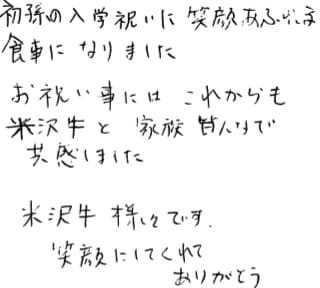 初孫の入学祝いに笑顔あふれる
食事になりました
お祝い事には これからも
米沢牛と 家族 皆んなで
共感しました
米沢牛 様々です.
笑顔にしてくれて
ありがとう